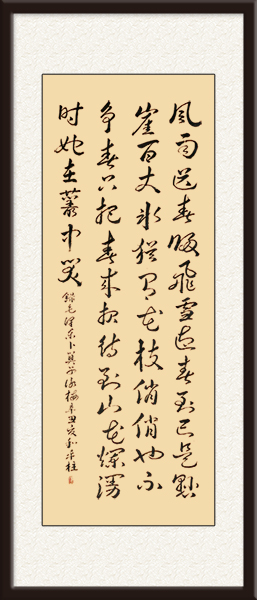 风雨送春归飞雪迎春到已是悬
崖百丈冰犹有花枝俏俏也不
争春只把春来报待到山花烂漫
时她在叢中笑
錄毛泽东卜算子咏梅辛丑